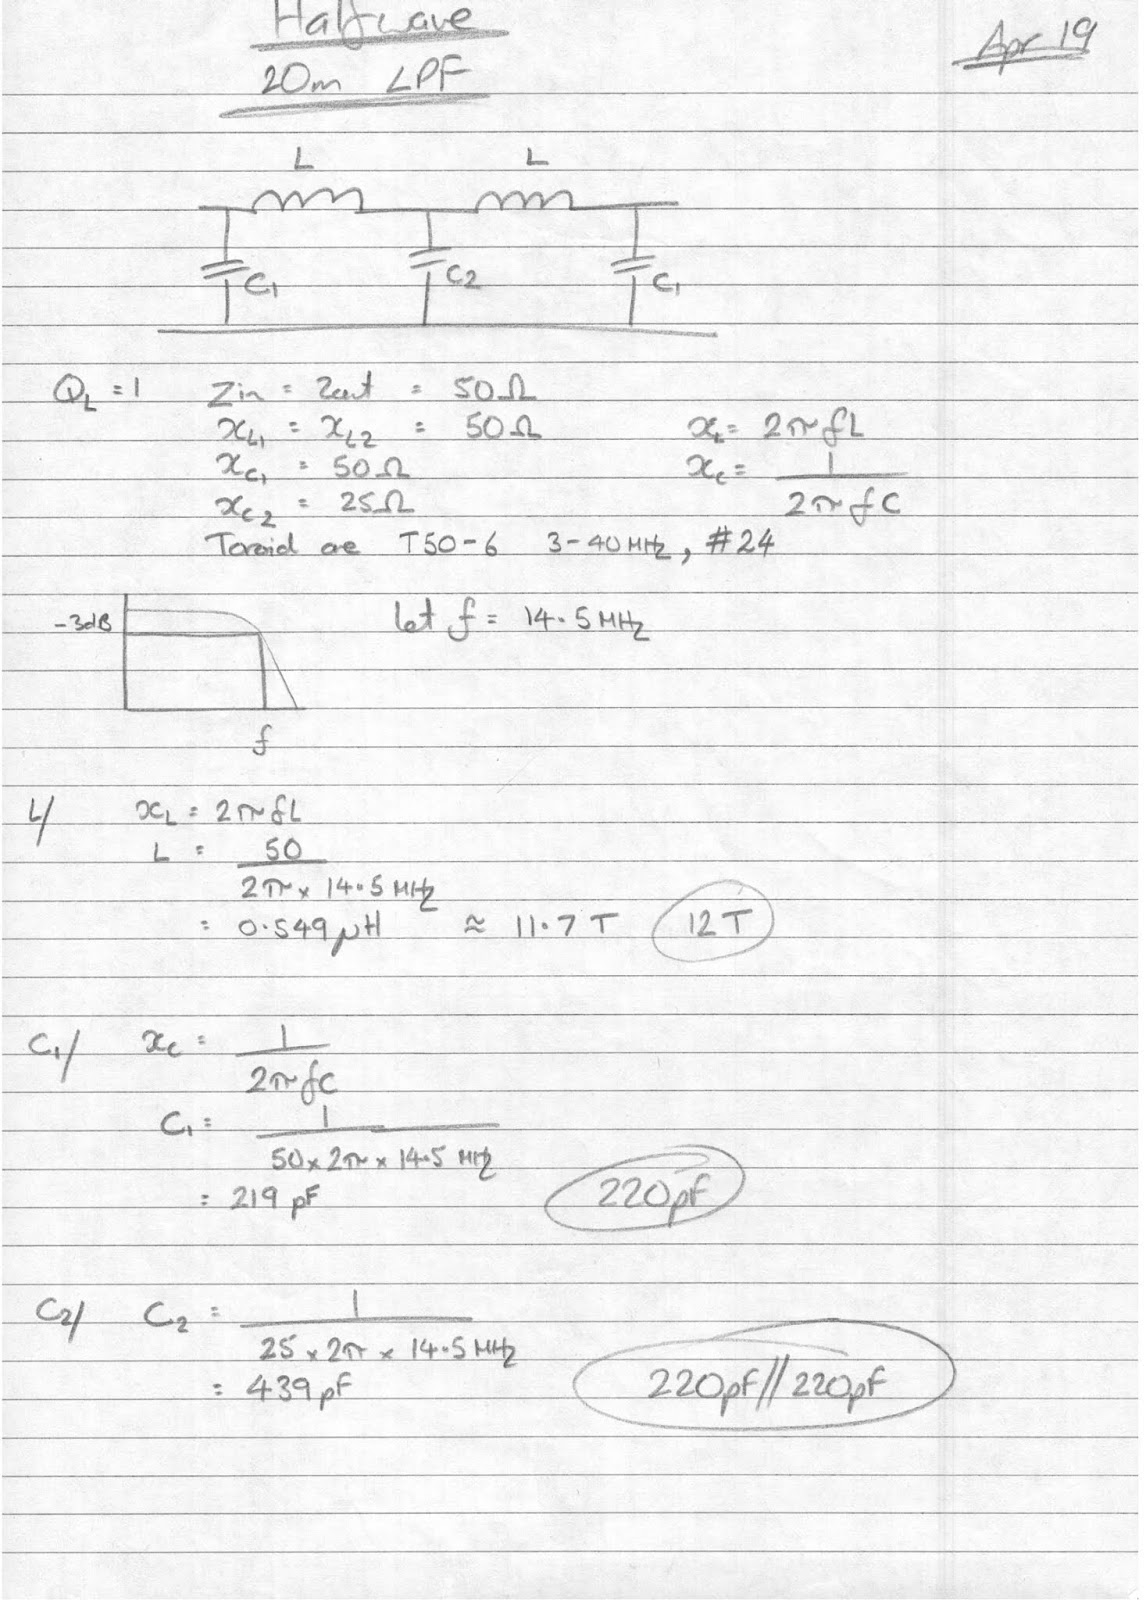 Halfwave
Apr 19
20m LPF
L L
C1 C2 C1
QL = 1 Zin = Zout = 50Ω
xL1 = xL2 = 50Ω xL = 2πfL
xC1 = 50Ω xC = 1/2πfC
xC2 = 25Ω
Toroid are T50-6 3-40MHz, #24
-3dB let f = 14.5MHz
f
L/ xL = 2πfL
L = 50
2π x 14.5MHz
= 0.549μH ≈ 11.7T 12T
C1/ xC = 1
2πfC
C1 = 1
50 x 2π x 14.5MHz
= 219pF 220pF
C2/ C2 = 1
25 x 2π x 14.5MHz
= 439pF 220pF//220pF